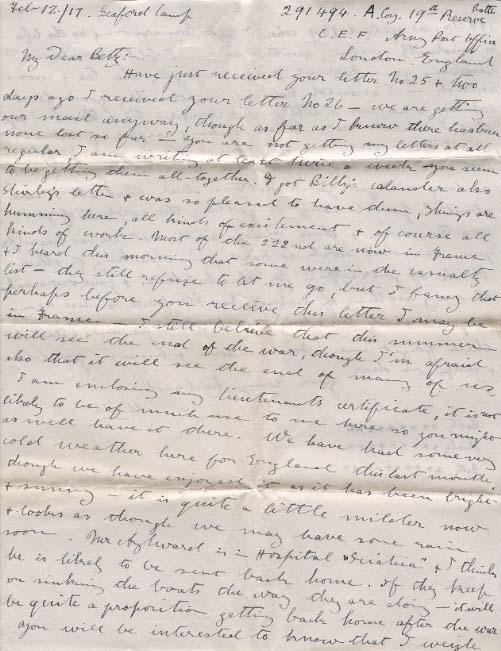 Feb-12/17. Seaford Camp 291494. A. Coy. 19th Reserve Batt
C.E.F. Army Post Office
London England
My Dear Betty:
Have just received your letter No 25 & two
days ago I received your letter No 26 - we are getting
our mail anyway, though as far as I know there has been
none lost so far - you are not getting my letters at all
regular I am writing at least twice a week you seem
to be getting them all-together. I got Billy's calander also
Shirley's letter & was so pleased to have them, things are
humming here, all kinds of excitement & of course all
kinds of work. Most of the 222nd are now in France
& I heard this morning that some were in the casualty
list - they still refuse to let me go, but I fancy that
perhaps before you receive this letter I may be
in France - I still believe that this summer
will see the end of the war, though I'm afraid
also that it will see the end of many of us,
I am enclosing my lieutenants certificate, it is not
likely to be of much use to me here so you might
as well have it there. We have had some very
cold weather here for England this last month
though we have enjoyed it as it has been bright
& sunny - it is quite a little milder now
& looks as though we may have some rain
soon. Mr Aylward is in Hospital "Sciatica" & I think
he is likely to be sent back home. If they keep
on sinking the boats the way they are doing - it will
be quite a proposition getting back home after the war
you will be interested to know that I weigh